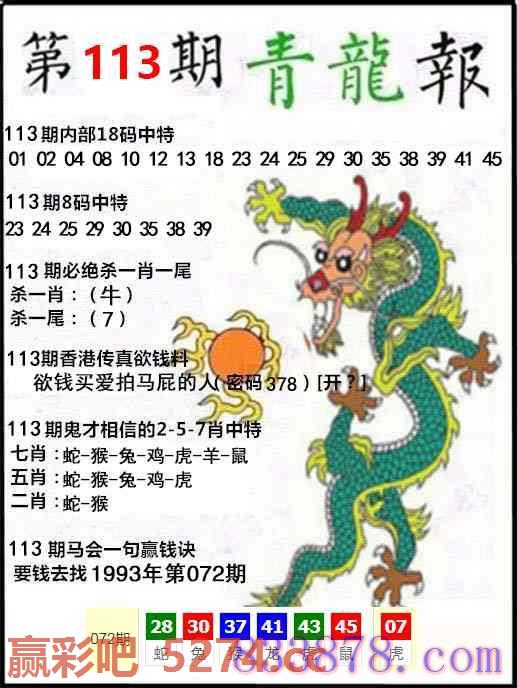 第113期青龍報
113期内部18码中特
01 02 04 08 10 12 13 18 23 24 25 29 30 35 38 39 41 45
113期8码中特
23 24 25 29 30 35 38 39
113期必绝杀一肖一尾
杀一肖:(牛)
杀一尾:(7)
113期香港传真欲钱料
欲钱买爱拍马屁的人(密码378)[开?]
113期鬼才相信的2-5-7肖中特
七肖:蛇-猴-兔-鸡-虎-羊-鼠
五肖:蛇-猴-兔-鸡-虎
二肖:蛇-猴
113期马会一句赢钱诀
要钱去找1993年第072期
072期 28 30 37 41 43 45 07
蛇 兔 猴 龙 虎 鼠 虎
赢彩吧 5274.cc
3878.com